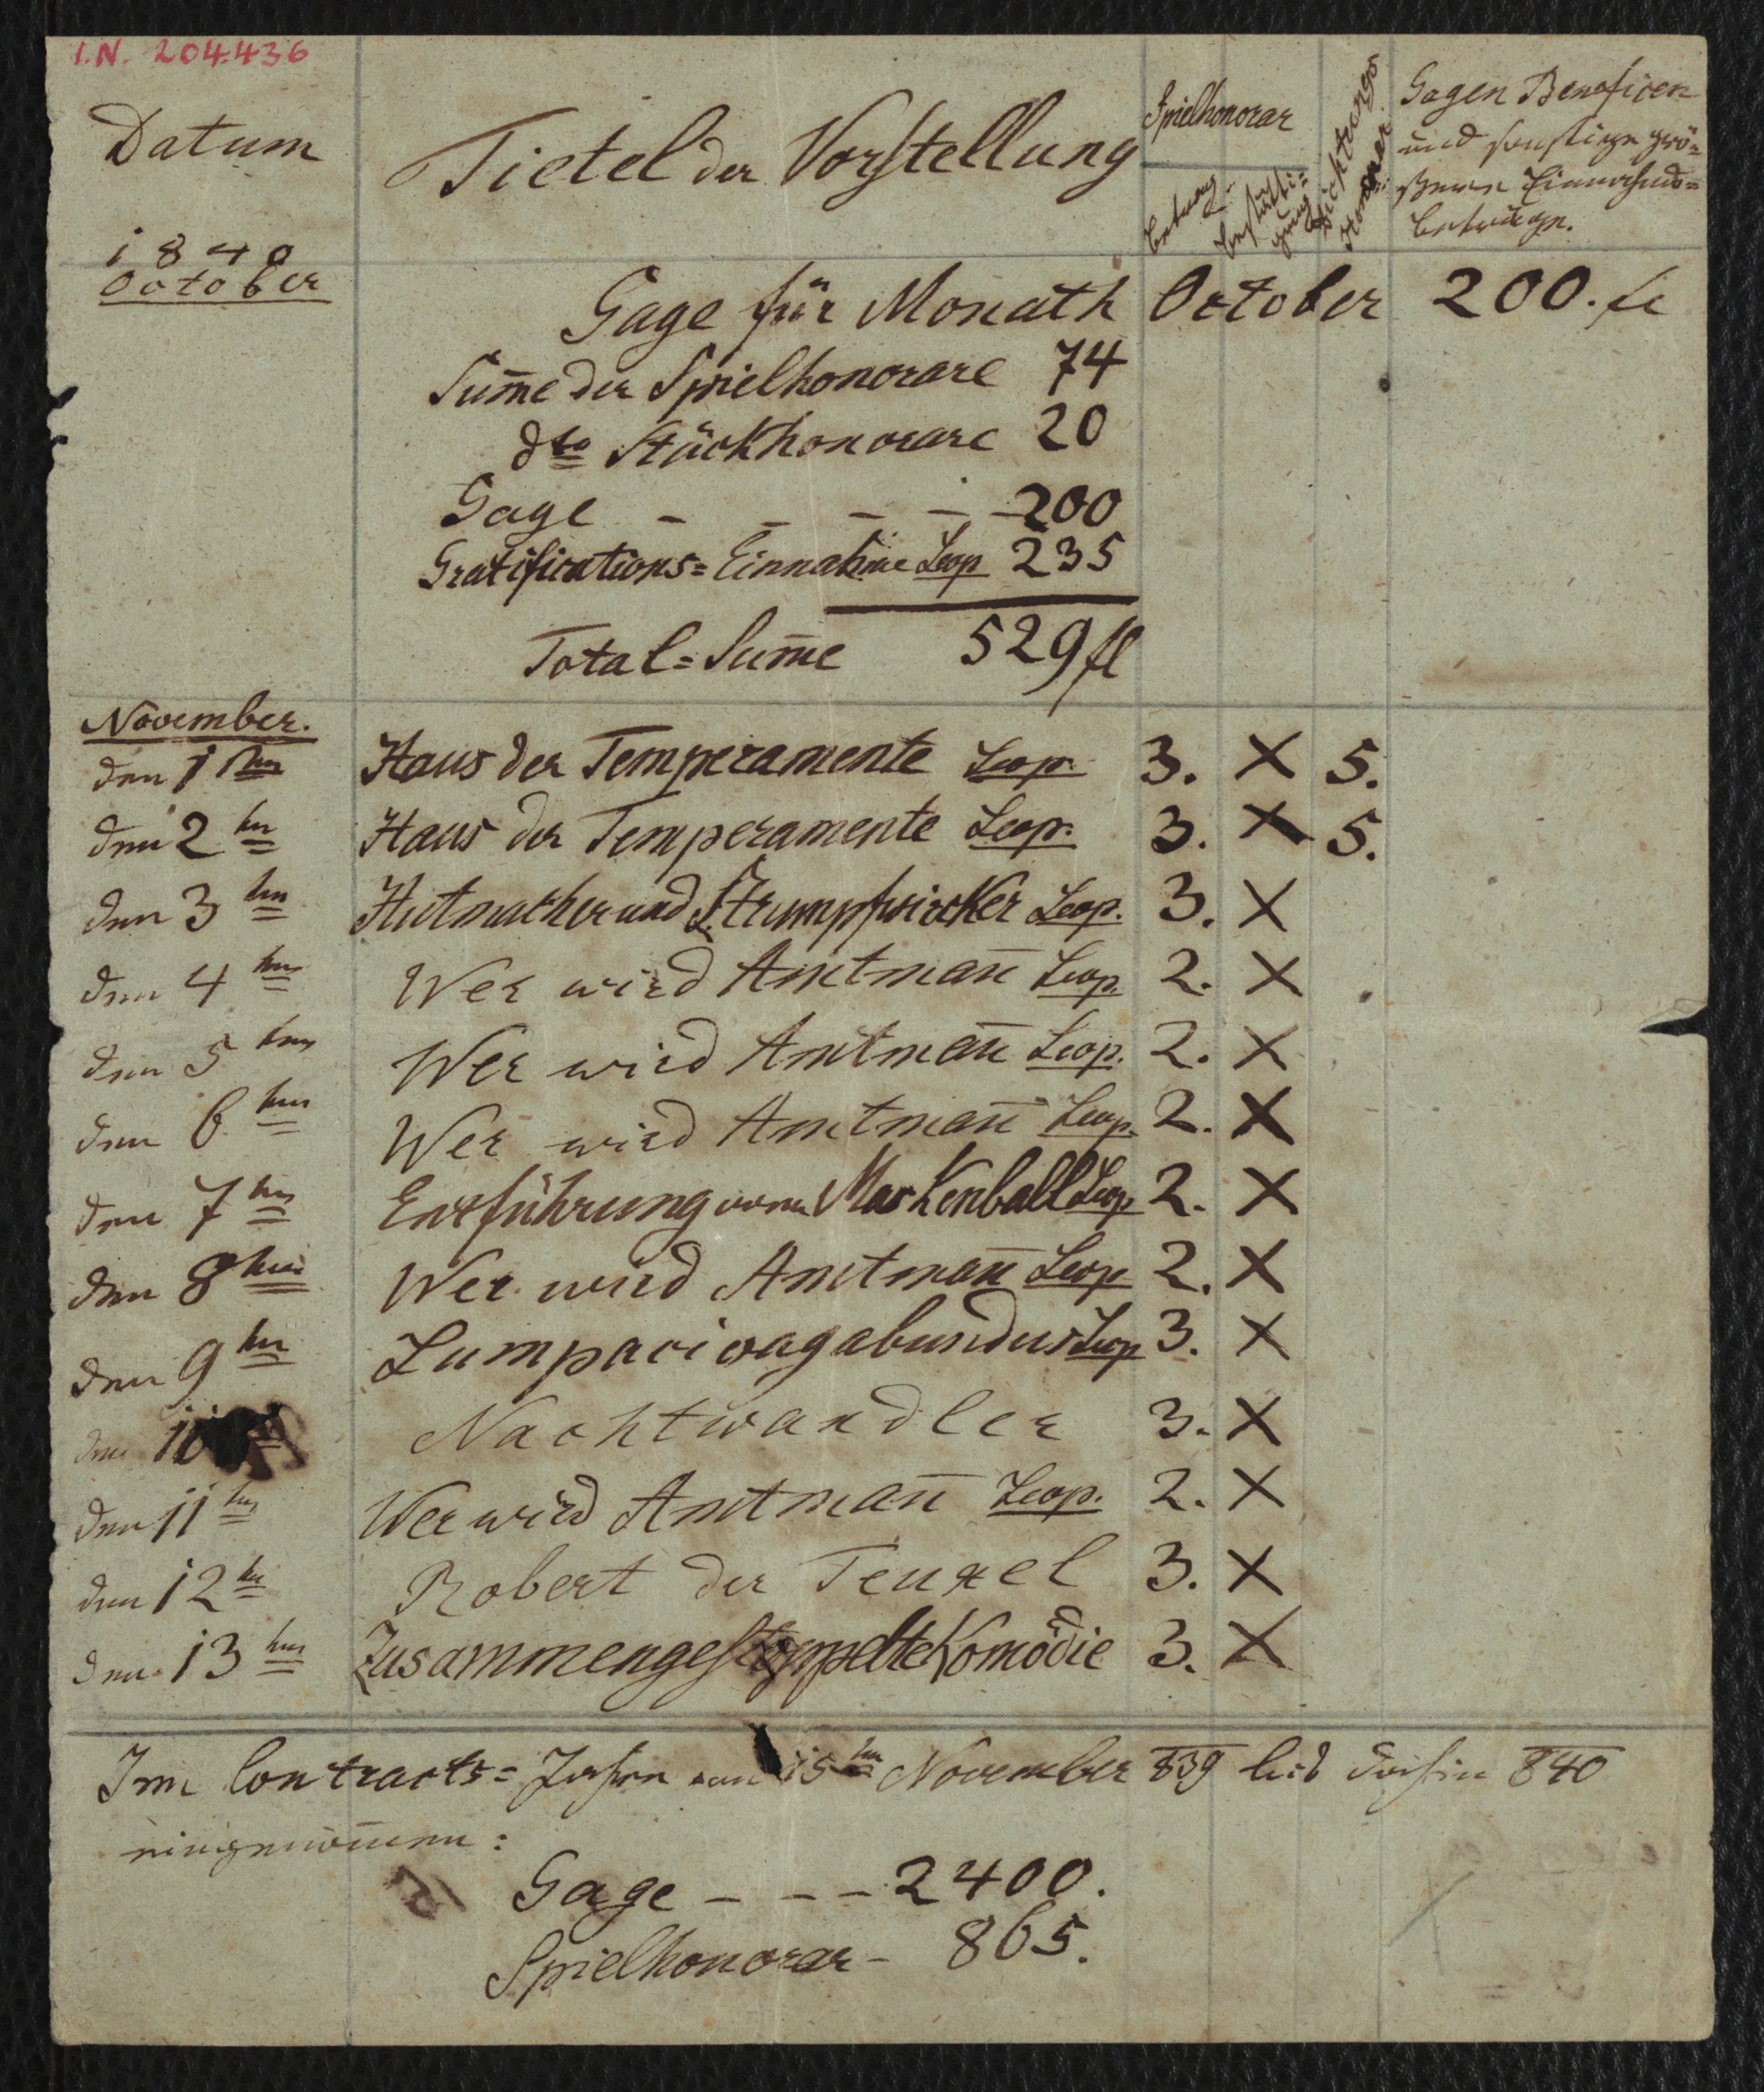 I.N. 204.436
Datum
Tietel der Vorstellung
Spielhonorar
betrag
bestätti=
gung
Dichtungs
Honorar
Gagen Beneficen
und sonstige grö=
ßere Einnahms=
beträge.
1840
October
Gage für Monath October 200. fl
Sum̄e der Spielhonorare 74
dto Stückhonorare 20
Gage - - - - - 200
Gratifications=Einnahme Leop 235
Total=Sum̄e 529 fl
November.
den 1ten Haus der Temperamente Leop. 3. X 5.
den 2ten Haus der Temperamente Leop. 3. X 5.
den 3ten Hutmacher und Strumpfwircker Leop. 3. X
den 4ten Wer wird Amtman̄ Leop. 2. X
den 5ten Wer wird Amtman̄ Leop. 2. X
den 6ten Wer wird Amtman̄ Leop. 2. X
den 7ten Entführung vom Maskenball Leop 2. X
den 8ten Wer wird Amtman̄ Leop 2. X
den 9ten Lumpacivagabundus Leop 3. X
den 10 Nachtwandler 3. X
den 11ten Wer wird Amtman̄ Leop. 2. X
den 12ten Robert der Teuxel 3. X
den 13ten Zusammengestoppelte Komödie 3. X
Im Contracts=Jahre vom 15ten November 839 bis dahin 840
eingenom̄en:
Gage - - - 2400.
Spielhonorar - 865.